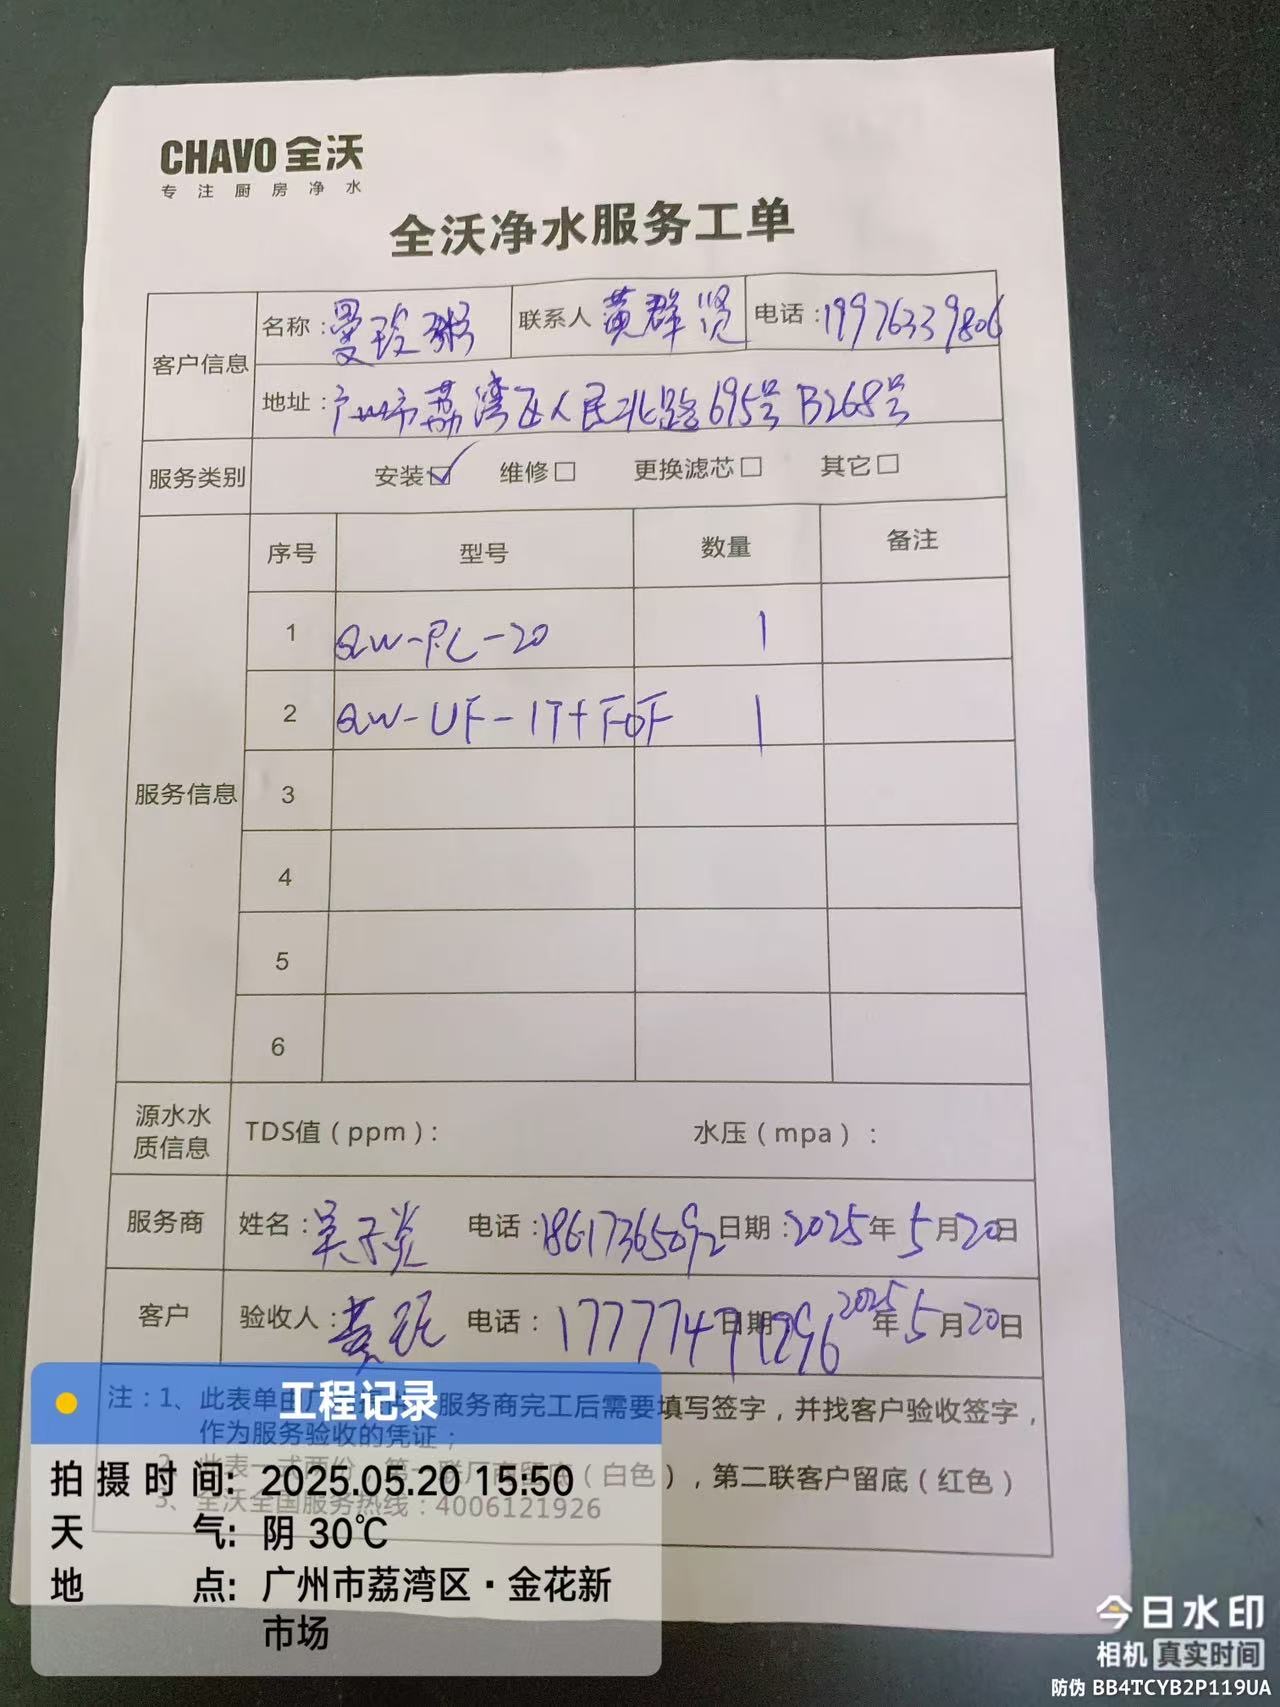 CHAVO 全沃
专注厨房净水
全沃净水服务工单
客户信息
名称：曼玲粥 联系人 黄群贤 电话：19976339806
地址：广州市荔湾区人民北路695号B268号
服务类别 安装☑ 维修□ 更换滤芯□ 其它□
服务信息
序号 型号 数量 备注
1 QW-PL-20 1
2 QW-UF-1T+FOF 1
3
4
5
6
源水水质信息 TDS值（ppm）： 水压（mpa）：
服务商 姓名： 电话：18617365092 日期：2025年5月20日
客户 验收人： 电话：17777471296 日期 2025年5月20日
注：1、此表单由厂 服务商完工后需要填写签字，并找客户验收签字，
作为服务验收的凭证；
2、此表一式两份，第一联厂商留底（白色），第二联客户留底（红色）
3、全沃全国服务热线：4006121926
工程记录
拍摄时间：2025.05.20 15:50
天气：阴 30℃
地点：广州市荔湾区·金花新
市场
今日水印
相机 真实时间
防伪 BB4TCYB2P119UA